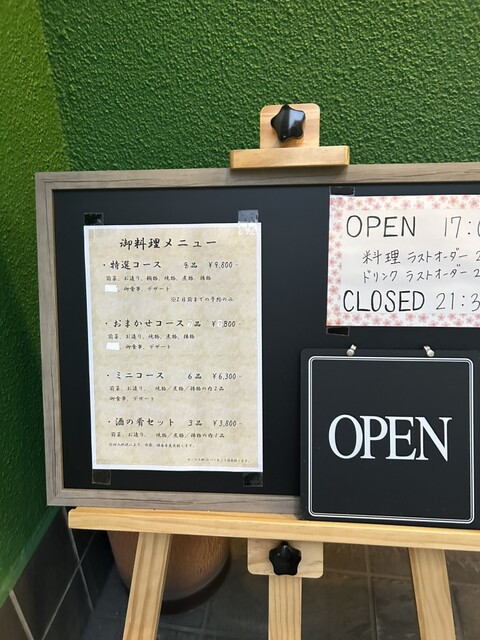 御料理メニュー
・特選コース 8品 ¥9,800-
前菜、お造り、鍋物、焼物、煮物、揚物
御食事、デザート
※2日前までの予約のみ
・おまかせコース 品 ¥ 800-
前菜、お造り、焼物、煮物、揚物
御食事、デザート
・ミニコース 6品 ¥6,300-
前菜、お造り、 焼物/煮物/揚物の内2品
御食事、デザート
・酒の肴セット 3品 ¥3,800-
前菜、お造り、 焼物/煮物/揚物の内1品
OPEN 17:0
料理 ラストオーダー 2
ドリンク ラストオーダー 2
CLOSED 21:3
OPEN